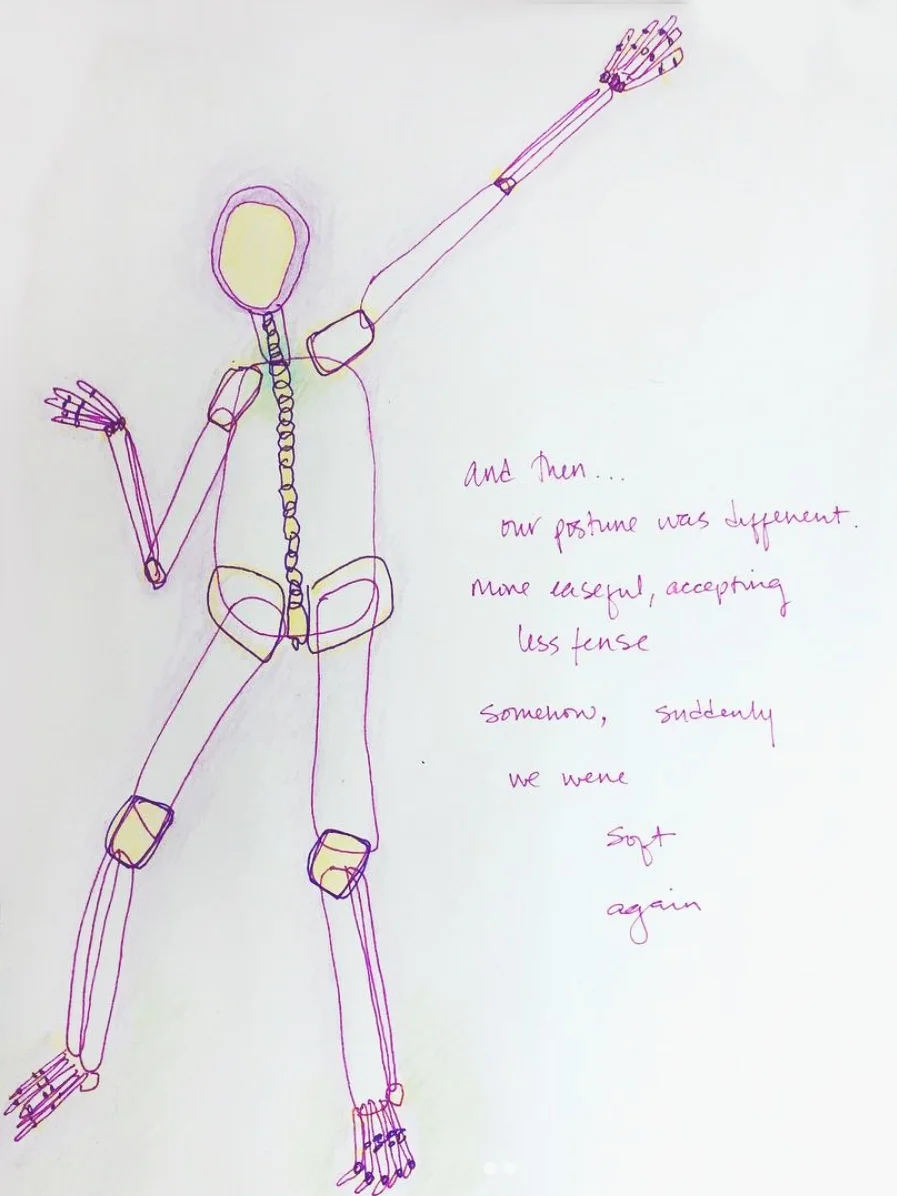 and then...
our posture was different.
more easeful, accepting
less tense
somehow, suddenly
we were
soft
again